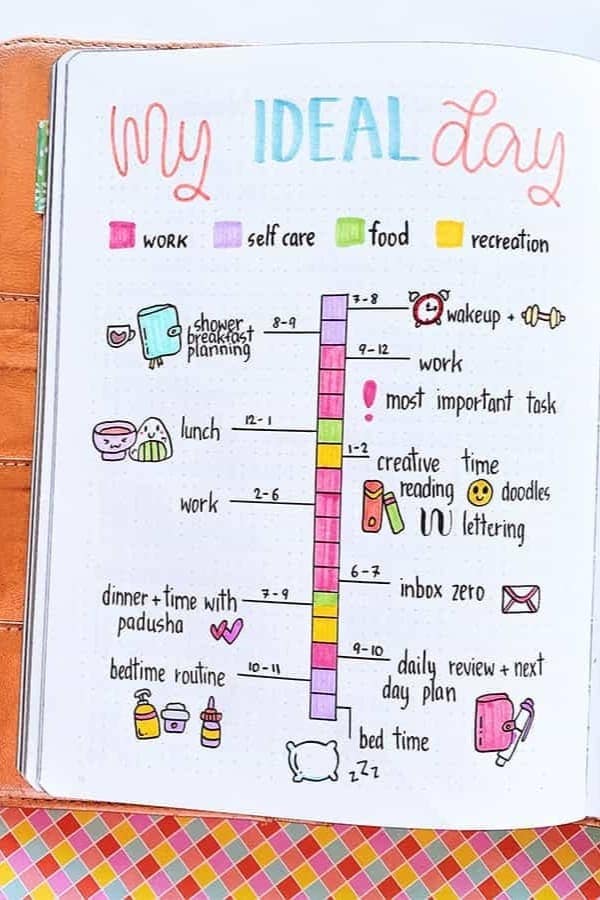 My IDEAL day
WORK self care food recreation
7-8 wakeup +
8-9 shower
breakfast
planning
9-12 work
! most important task
12-1 lunch
1-2 creative time
reading doodles
W lettering
2-6 work
6-7 inbox zero
7-9 dinner + time with
padusha
9-10 daily review + next
day plan
10-11 bedtime routine
bed time
zzz